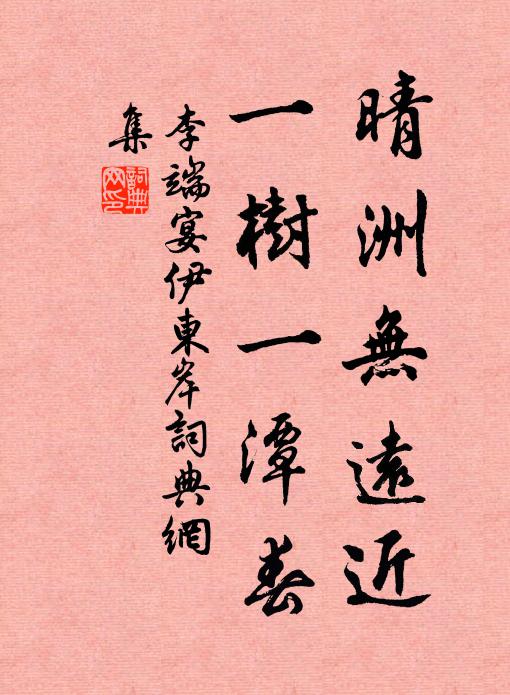 晴洲無遠近
一樹一潭春
李端宴伊東岸詞典網
集
詞典網印